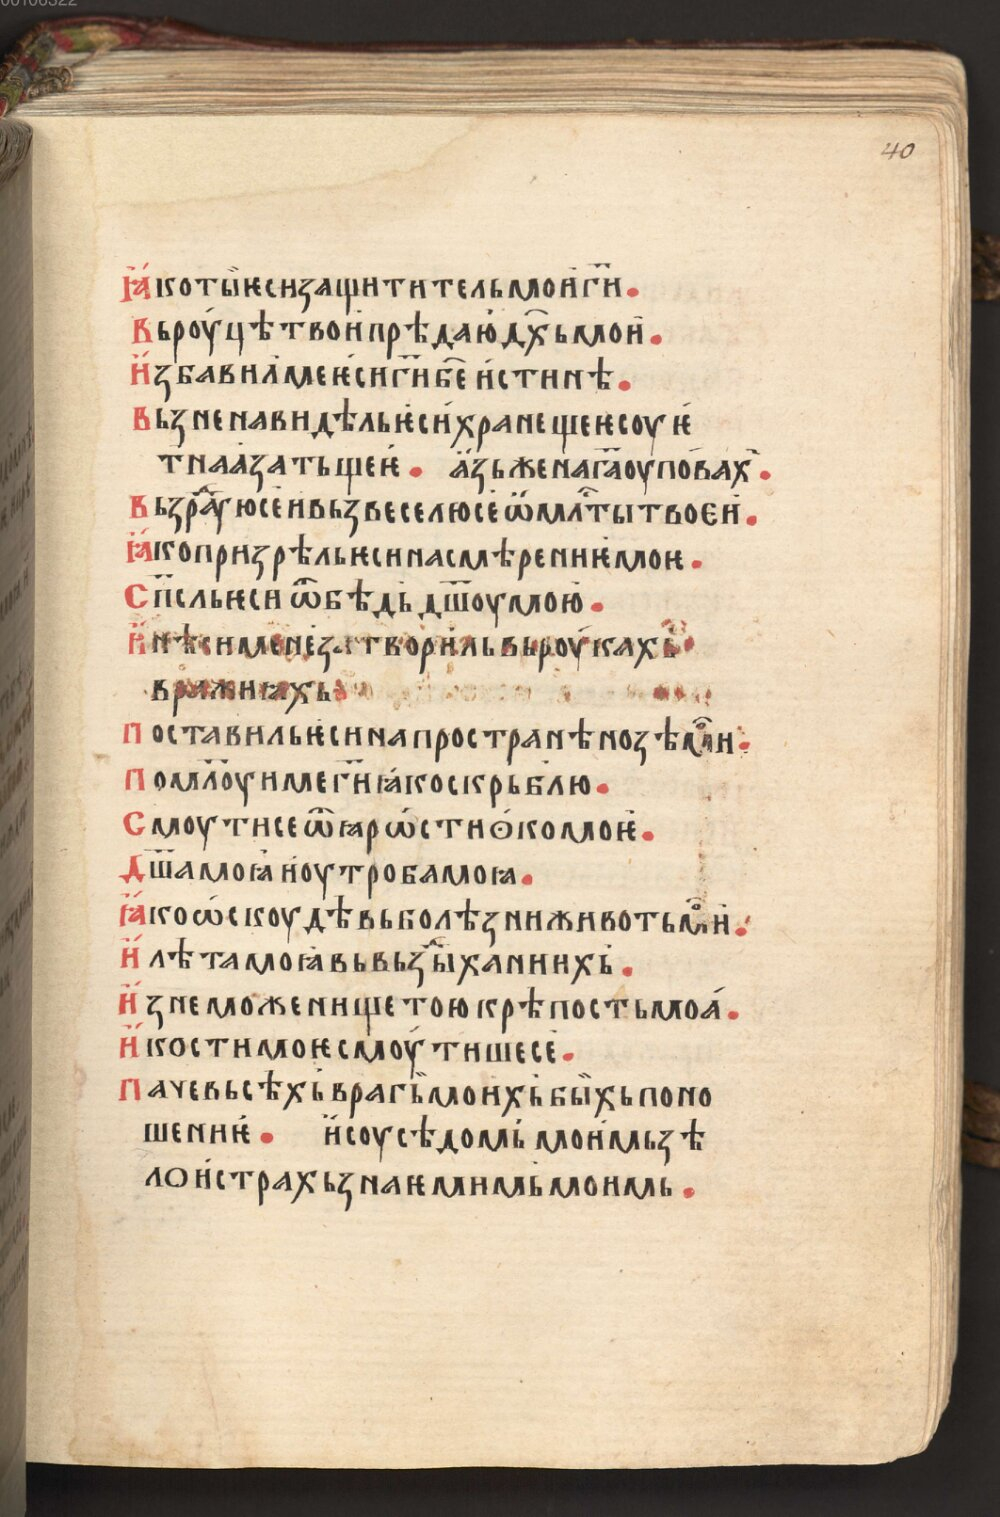 00106322
40
Ꙗ҆́ко ты̀ ѥси защититель мои҆ гн҃и.
Вь роу́цѣ твои҆ прѣдаю҆ дх҃ь мои҆.
И҆збавил ме ѥ҆си гн҃и бж҃е и҆стинѣ.
Вьзненавидѣль ѥси҆ хранещеѥ соуѥ҆
тнаа҆ за тьщеѥ҆. а҆́зь же на га҃ оуповах.
Вьзрⷣаую се и҆ вьзвеселю се ѡ҆ млⷭ҇ти твоѥи҆.
Ꙗ҆́ко призрѣль ѥси на смѣрениѥ҆ моѥ.
Сп҃сль ѥси ѿ бѣдь дш҃оу мою҆.
И҆ нѣси мене҆ затвори҆ль вь роу́кахь
вражиꙗхь
Поставиль ѥси на пространѣ нозѣ мои.
Помлⷭ҇оуи ме гн҃и ꙗ҆ко скрьблю.
Смоути се ѿ ꙗрѡ́сти ѻ҆ко моѥ҆.
Дш҃а моꙗ҆ и҆ оутроба моꙗ.
Ꙗ҆́ко ѡ҆скоудѣ вь болѣзни животь мои҆.
И҆ лѣта моꙗ҆ вь вьзⷣыханиихь.
И҆знеможе нищетою крѣпость моа҆.
И҆ кости моѥ смоу́тише се.
Паче вьсѣхь врагь мои҆хь бы́хь поно
шениѥ҆. и҆ соусѣдомь мои҆мь зѣ
ло и҆ страхь знаѥмимь моимь.